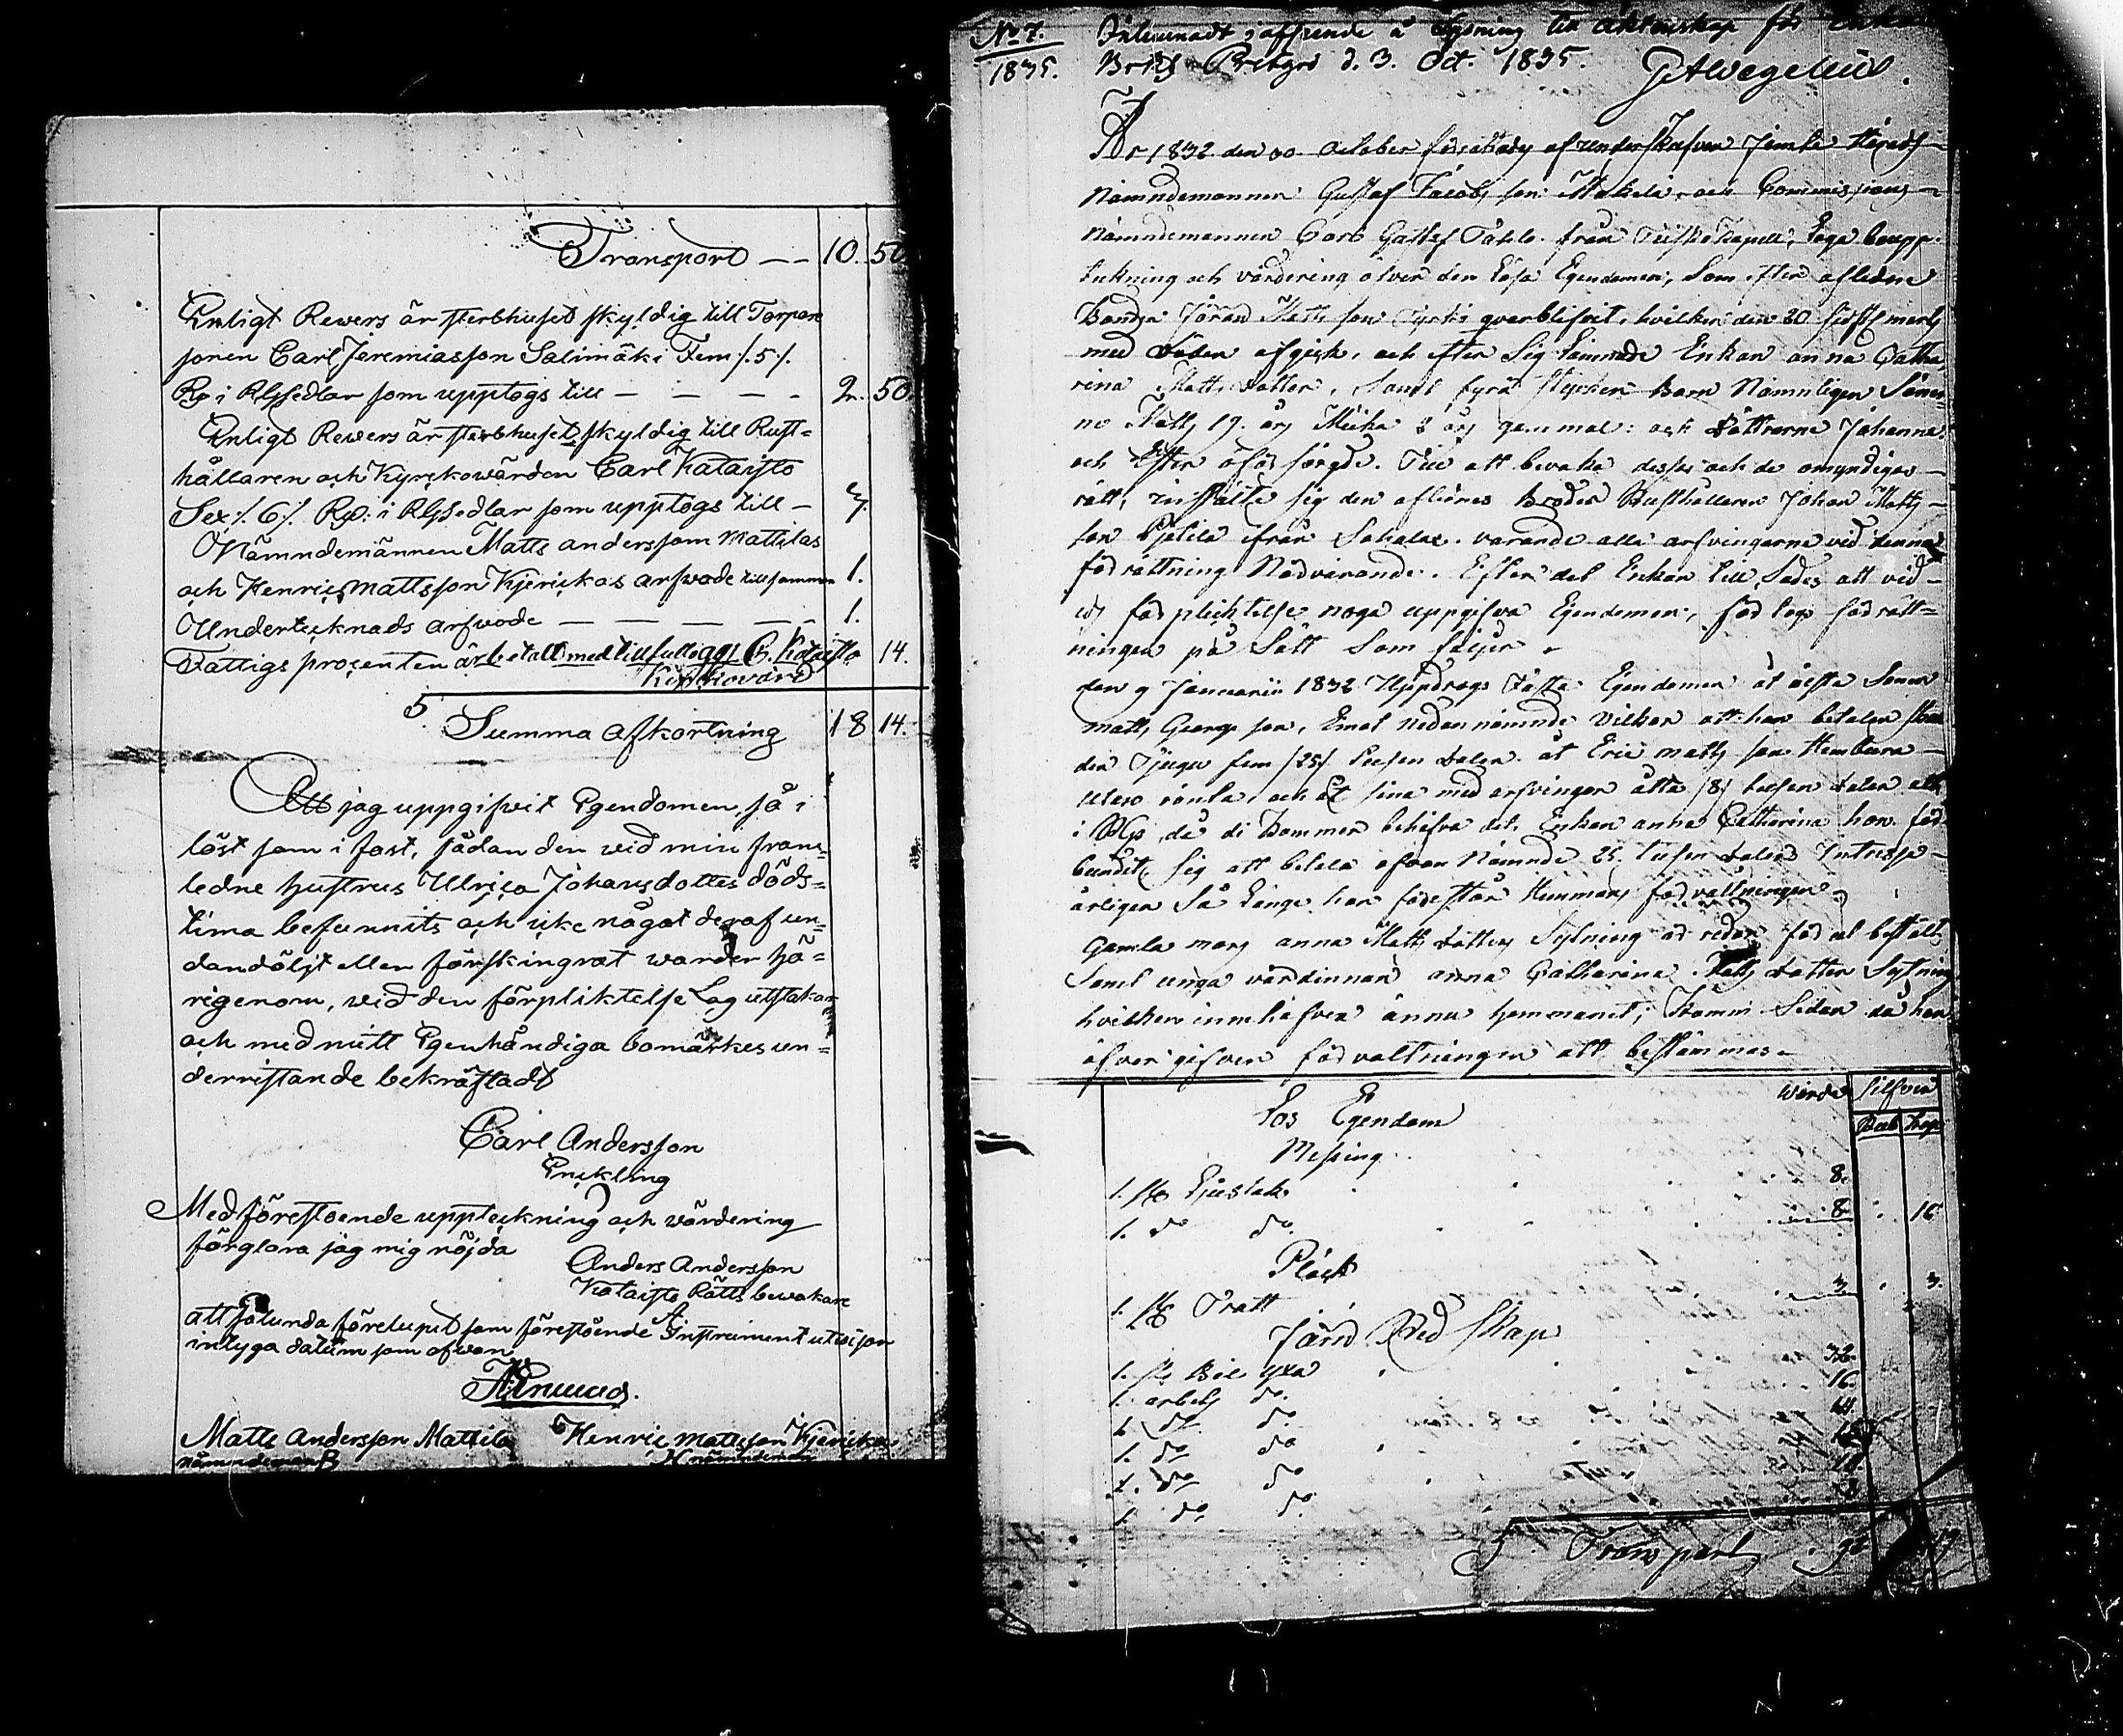 Transport — — 10. 50.
Enligt Revers är sterbhuset skyldig till Torpare
sonen Carl Jeremiasson Salimäki Fem /. 5 /.
Rp i RGssedlar som upptogs till — — — — 2. 50.
Enligt Revers är sterbhuset skyldig till Rust=
hållaren och Kyrckowärden Carl Kataisto
Sex /. 6 /. Rp: i RGssedlar som upptogs till — 3.
Nämndemännen Matts andersson Mattilas
och Henric mattsson Kjerickas arfvode tillsamman 1.
Undertecknads arfvode — — — — — 1.
Fattigs procenten är betalt med tillfullo C. Kataisto 14.
Kyrkiovärd
5 Summa afkortning 18 14.
Att jag uppgifvit Egendomen, så i
löst som i fast, sådan den vid min fram=
ledne hustrus Ulrica Johansdotters döds=
tima befunnits och icke något deraf un=
dandöljt eller förskingrat warder hä=
rigenom, vid den förpliktelse Lag utstakar
och med mitt Egenhändiga bomärkes un=
derristande bekräftadt
Carl Andersson
Knickling
Med förestoende uppteckning och värdering
förglara jag mig nöjda
Anders Andersson
Kataisto Rätts bewakare
att sålunda förelupit som förestående Instrument utvisar
intyga datum som ofwan
Matts Andersson Mattila Henric mattsson Kjericka
nämndeman nämndeman
No 7. Inlemnadt i afseende å Lysning till äktenskap för Enkan
1835. Prestgrd d. 3. Oct. 1835. G A Wegelius.
År 1832 den 30 October förrättades af underskrefven Jemte Härads-
Nämndemannen Gustaf Jacobs son Mäkelä, och Commissions-
nämndemannen Carl Gustaf från Capell, Laga boupp-
tekning och värdering öfver den Lösa Egendomen, Som efter aflidne
Bonden Jöran Matts son qvarblifvit, hvilken den 20 sistl
med Döden afgick, och efter Sig Lämnade Enkan anna Catha
rina Matts dotter, Samt fyra stycken Barn Nämnligen Söner
ne Matts 19. års Micka 8 års gammal: och Döttrarne Johanna
och Ester oförsörgde. Till att bevaka desses och de omyndigas
rätt, infstälte sig den aflidnes Broder Rusthållaren Johan Matts
son ifrån varande alla arfvingarne vid denna
förrättning Närvarande. Efter det Enkan till Sades att vid
eds förplichtelse noga uppgifva Egendomen, förlop förrätt=
ningen på Sätt Som följer.
den 9 Januarii 1832 Uppdrogs Fasta Egendomen åt älsta Sonen
matts Georgs son, Emot nedannämnde vilkor att han betalar
den Tjugu fem /25/ Tusen daler åt Eric matts son
och åt sina med arfvingar åtta /8/ tusen daler allt
i då di kommer behöfva det. Enkan anna Catharina har för
bundit Sig att betala ofvan Nämnde 25. tusen dalers Intresse
årligen Så Länge hon förestår Hemmans förvaltningen.
Gamla mors anna Matts dotters Sytning är redan förut bestält,
Samt unga värdinnan anna Catharina Matts dotter Sytning
hvilken innehafver ännu hemmanet, Kommer Sedan då hon
öfver gifver förvaltningen att bestämmas.
Wärde Silfver
Lös Egendom Rub Kop
Messing
1. st. Ljusstake 8.
1. do do 8. 16
Pläck
1. st. Tratt 3. 3.
Järn Redskap
1. st. Bil yxa 32.
1. arbets do. 16.
1. do do.
1. do do
1. do do
1. do do.
Transport